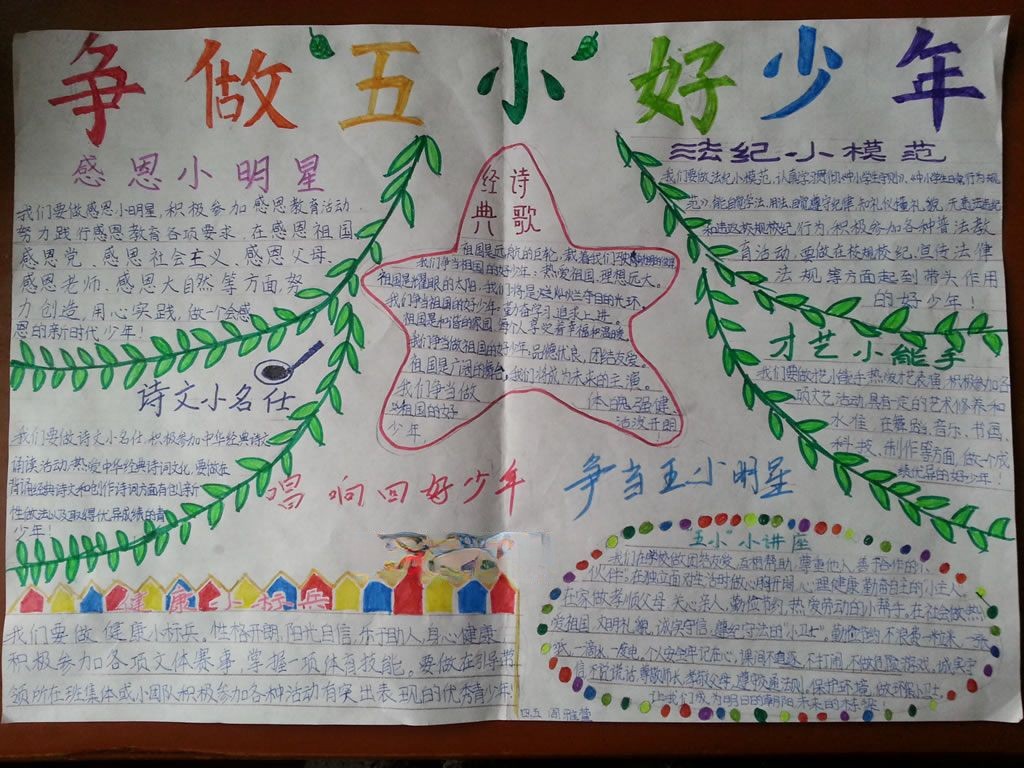 争做五小好少年
感恩小明星
我们要做感恩小明星,积极参加感恩教育活动.
努力践行感恩教育各项要求,在感恩祖国.
感恩党、感恩社会主义、感恩父母、
感恩老师、感恩大自然等方面,努
力创造,用心实践,做一个会感
恩的新时代少年!
诗文小名仕
我们要做诗文小名仕,积极参加中华经典诗文
诵读活动,热爱中华经典诗词文化,要做在
背诵经典诗文和创作诗词方面有创新
性做法以及取得优异成绩的青
少年!
经典
诗歌
祖国是远航的巨轮,载着我们
我们争当祖国的好少年.热爱祖国,理想远大。
祖国是耀眼的太阳,我们将是灿烂夺目的光环.
我们争当祖国的好少年.勤奋学习追求上进.
祖国是和谐的家园,每个人享受着幸福和温暖.
我们争当做祖国的好少年,品德优良、团结友爱。
祖国是广阔的舞台,我们将成为未来的主演。
我们争当做 体魄强健、
祖国的好 活泼开朗
少年, !
法纪小模范
我们要做法纪小模范,认真学习贯彻《中小学生守则》、《中小学生日常行为规
范》,能自觉学法、用法,自觉遵守纪律,知礼仪懂礼貌,无违法违纪
和违反校规校纪行为,积极参加各种普法教
育活动,要做在校规校纪、宣传法律
法规等方面起到带头作用
的好少年!
才艺小能手
我们要做才艺小能手,热爱才艺表演,积极参加各
项文艺活动,具有一定的艺术修养和
水准,在舞蹈、音乐、书画、
科技、制作等方面,做一个成
绩优异的好少年!
唱响四好少年
争当五小明星
健康小标兵
我们要做健康小标兵。性格开朗,阳光自信,乐于助人,身心健康
积极参加各项文体赛事,掌握一项体育技能。要做在引导带
领所在班集体或小团队积极参加各种活动有突出表现的优秀青少年!
"五小"小讲座
我们在学校做团结友爱、互相帮助、尊重他人、善于合作的小
伙伴;在独立面对生活时做心胸开阔、心理健康、勤奋自主的小主人。
在家做孝顺父母、关心亲人、勤俭节约、热爱劳动的小帮手,在社会做热
爱祖国、文明礼貌、诚实守信、遵纪守法的"小卫士"。勤俭节约,不浪费一粒米、一张
纸、一滴水、一度电。个人安全牢记在心,课间不追逐、不打闹,不做危险游戏,诚实守
信,不说谎话,尊敬师长,孝敬父母,遵守交通法规。保护环境,做环保小卫士。
让我们成为明日的朝阳,未来的栋梁!
四五